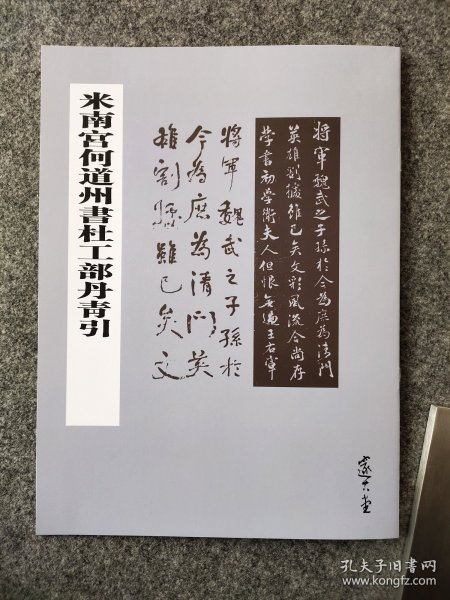 米南宮何道州書杜工部丹青引
將軍魏武之子孫於今為庶為清門
英雄割據雖已矣文彩風流今尚存
學書初學衛夫人但恨無過王右軍
將軍魏武之子孫於
今為庶為清門英
雄割據雖已矣文
孔夫子旧书网
www.kongfz.com